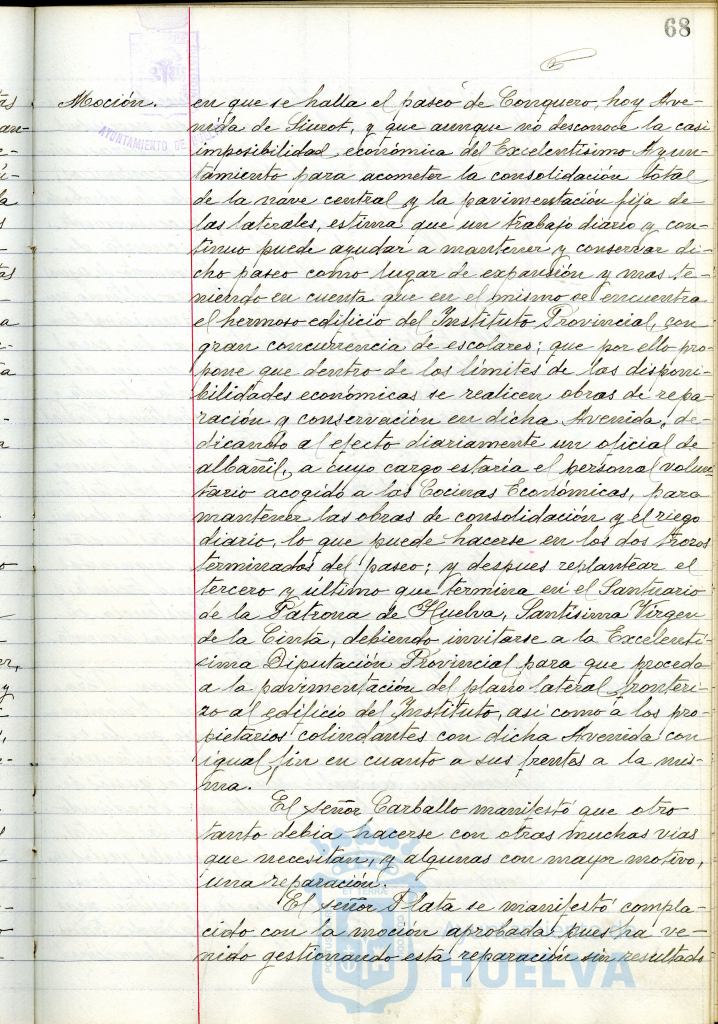 68
Moción.
en que se halla el paseo de Conquero, hoy Ave-
nida de Siurot, y que aunque no desconoce la casi
imposibilidad económica del Excelentísimo Ayun-
tamiento para acometer la consolidación total
de la nave central y la pavimentación fija de
las laterales, estima que un trabajo diario y con-
tinuo puede ayudar a mantener y conservar di-
cho paseo como lugar de expansión y mas te-
niendo en cuenta que en el mismo se encuentra
el hermoso edificio del Instituto Provincial, con
gran concurrencia de escolares; que por ello pro-
pone que dentro de los límites de las disponi-
bilidades económicas se realicen obras de repa-
ración y conservación en dicha Avenida, de-
dicando al efecto diariamente un oficial de
albañil, a cuyo cargo estaría el personal volun-
tario acogido a las Cocinas Económicas, para
mantener las obras de consolidación y el riego
diario, lo que puede hacerse en los dos trozos
terminados del paseo; y despues replantear el
tercero y último que termina en el Santuario
de la Patrona de Huelva, Santísima Virgen
de la Cinta, debiendo invitarse a la Excelentí-
sima Diputación Provincial para que proceda
a la pavimentación del plano lateral fronteri-
zo al edificio del Instituto, asi como a los pro-
pietarios colindantes con dicha Avenida con
igual fin en cuanto a sus frentes a la mis-
ma.
El señor Carballo manifestó que otro
tanto debia hacerse con otras muchas vias
que necesitan, y algunas con mayor motivo,
una reparación.
El señor Plata se manifestó compla-
cido con la moción aprobada pues ha ve-
nido gestionando esta reparación sin resultado
AYUNTAMIENTO DE
HUELVA